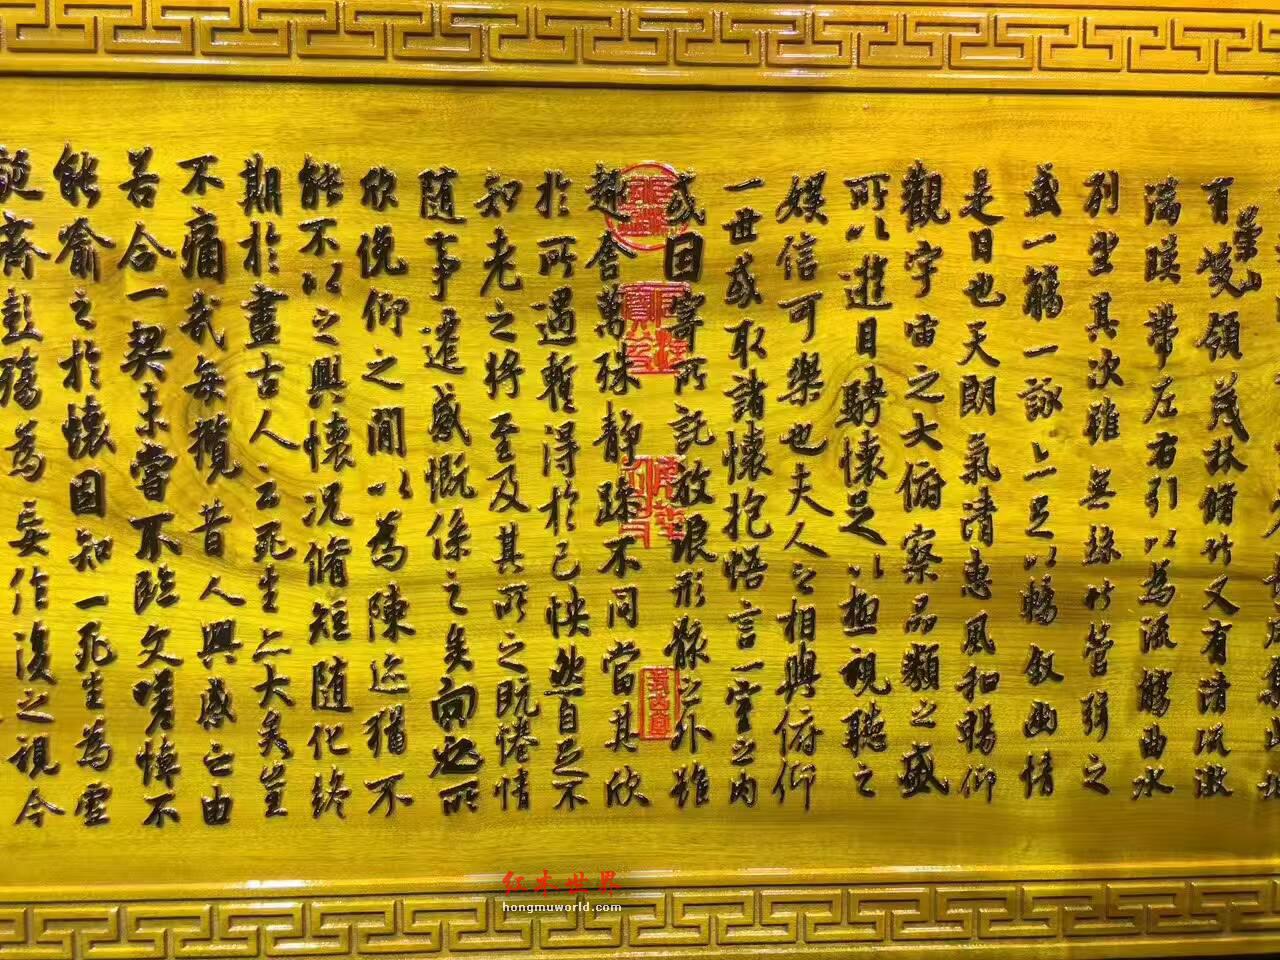 崇山
有峻領茂林脩竹又有清流激
湍暎帶左右引以為流觴曲水
列坐其次雖無絲竹管弦之
盛一觴一詠亦足以暢敘幽情
是日也天朗氣清惠風和暢仰
觀宇宙之大俯察品類之盛
所以遊目騁懷足以極視聽之
娛信可樂也夫人之相與俯仰
一世或取諸懷抱悟言一室之內
或因寄所託放浪形骸之外雖
趣舍萬殊靜躁不同當其欣
於所遇暫得於己怏然自足不
知老之將至及其所之既惓情
隨事遷感慨係之矣向之所
欣俛仰之間以為陳迹猶不
能不以之興懷況脩短隨化終
期於盡古人云死生亦大矣豈
不痛哉每攬昔人興感之由
若合一契未嘗不臨文嗟悼不
能喻之於懷固知一死生為虛
誕齊彭殤為妄作後之視今
红木世界
hongmuworld.com